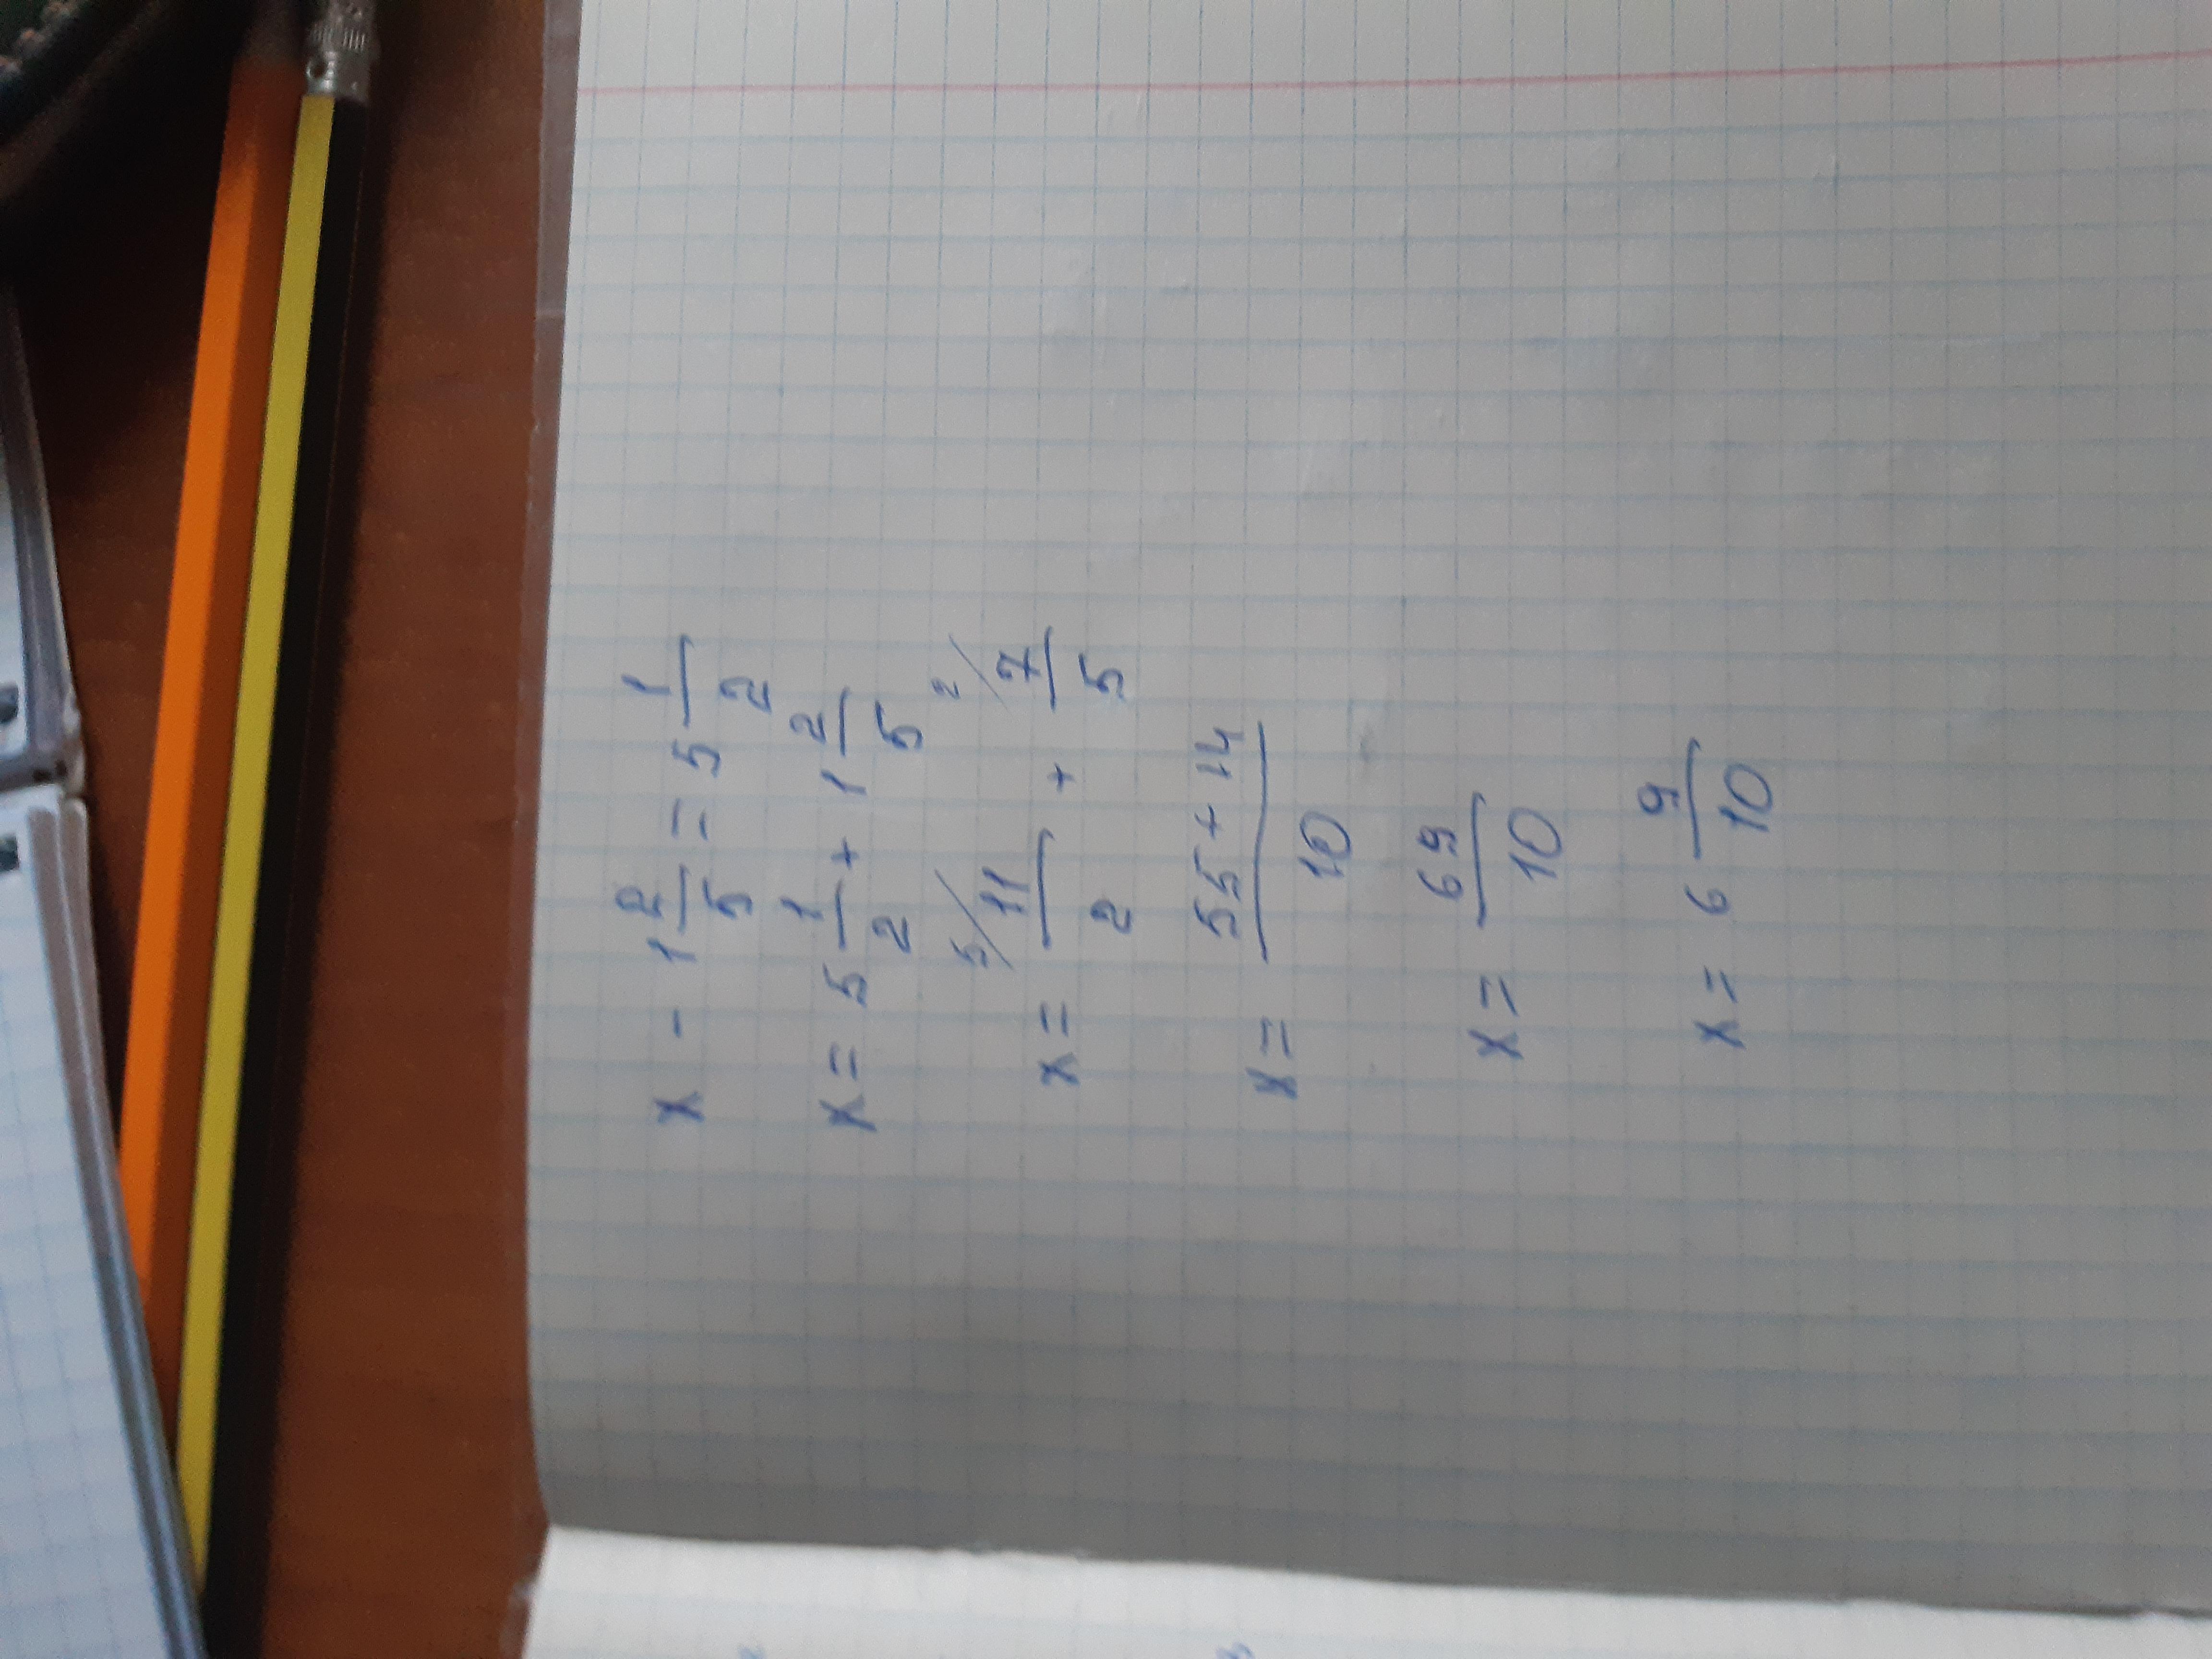 x - 1 2/5 = 5 1/2
x = 5 1/2 + 1 2/5
x = 5/ 11/2 + 2/ 7/5
x = 55+14/10
x = 69/10
x = 6 9/10